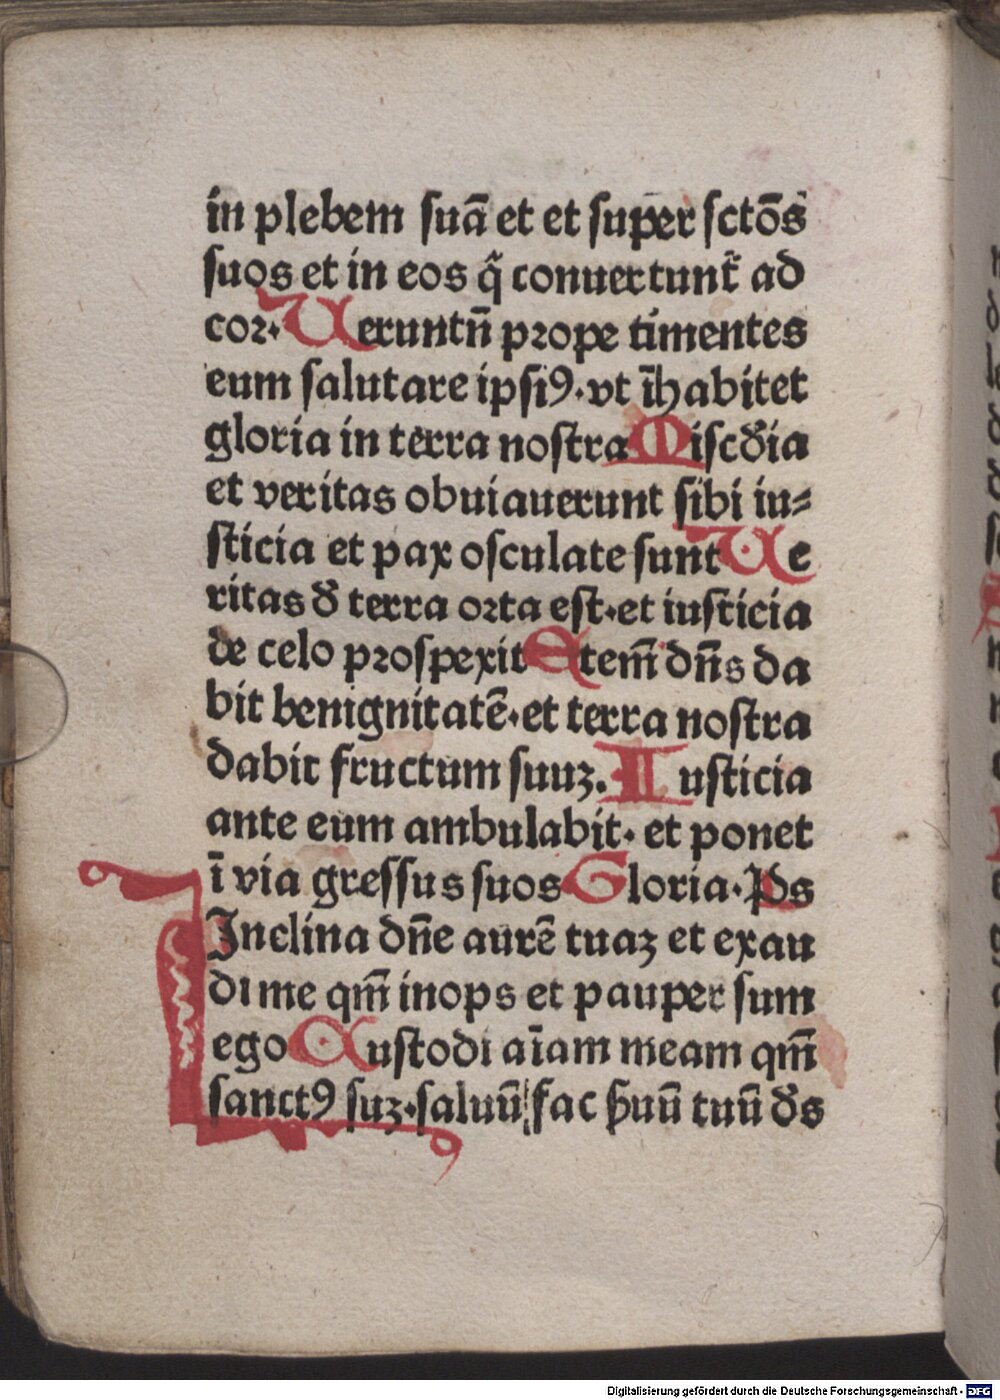 in plebem suā et et super sctōs
suos et in eos q̄ conuertunt᷑ ad
cor. Veruntn̄ prope timentes
eum salutare ipsiꝰ. vt īhabitet
gloria in terra nostra Misc̄dia
et veritas obuiauerunt sibi iu⸗
sticia et pax osculate sunt Ve
ritas d̄ terra orta est. et iusticia
de celo prospexit Etem̄ dn̄s da
bit benignitatē. et terra nostra
dabit fructum suuꝫ. Iusticia
ante eum ambulabit. et ponet
ī via gressus suos Gloria. Ps
Inclina dn̄e aurē tuaꝫ et exau
di me qm̄ inops et pauper sum
ego Custodi aīam meam qm̄
sanctꝰ suꝫ. saluū fac ẜuū tuū d̄s
Digitalisierung gefördert durch die Deutsche Forschungsgemeinschaft - DFG